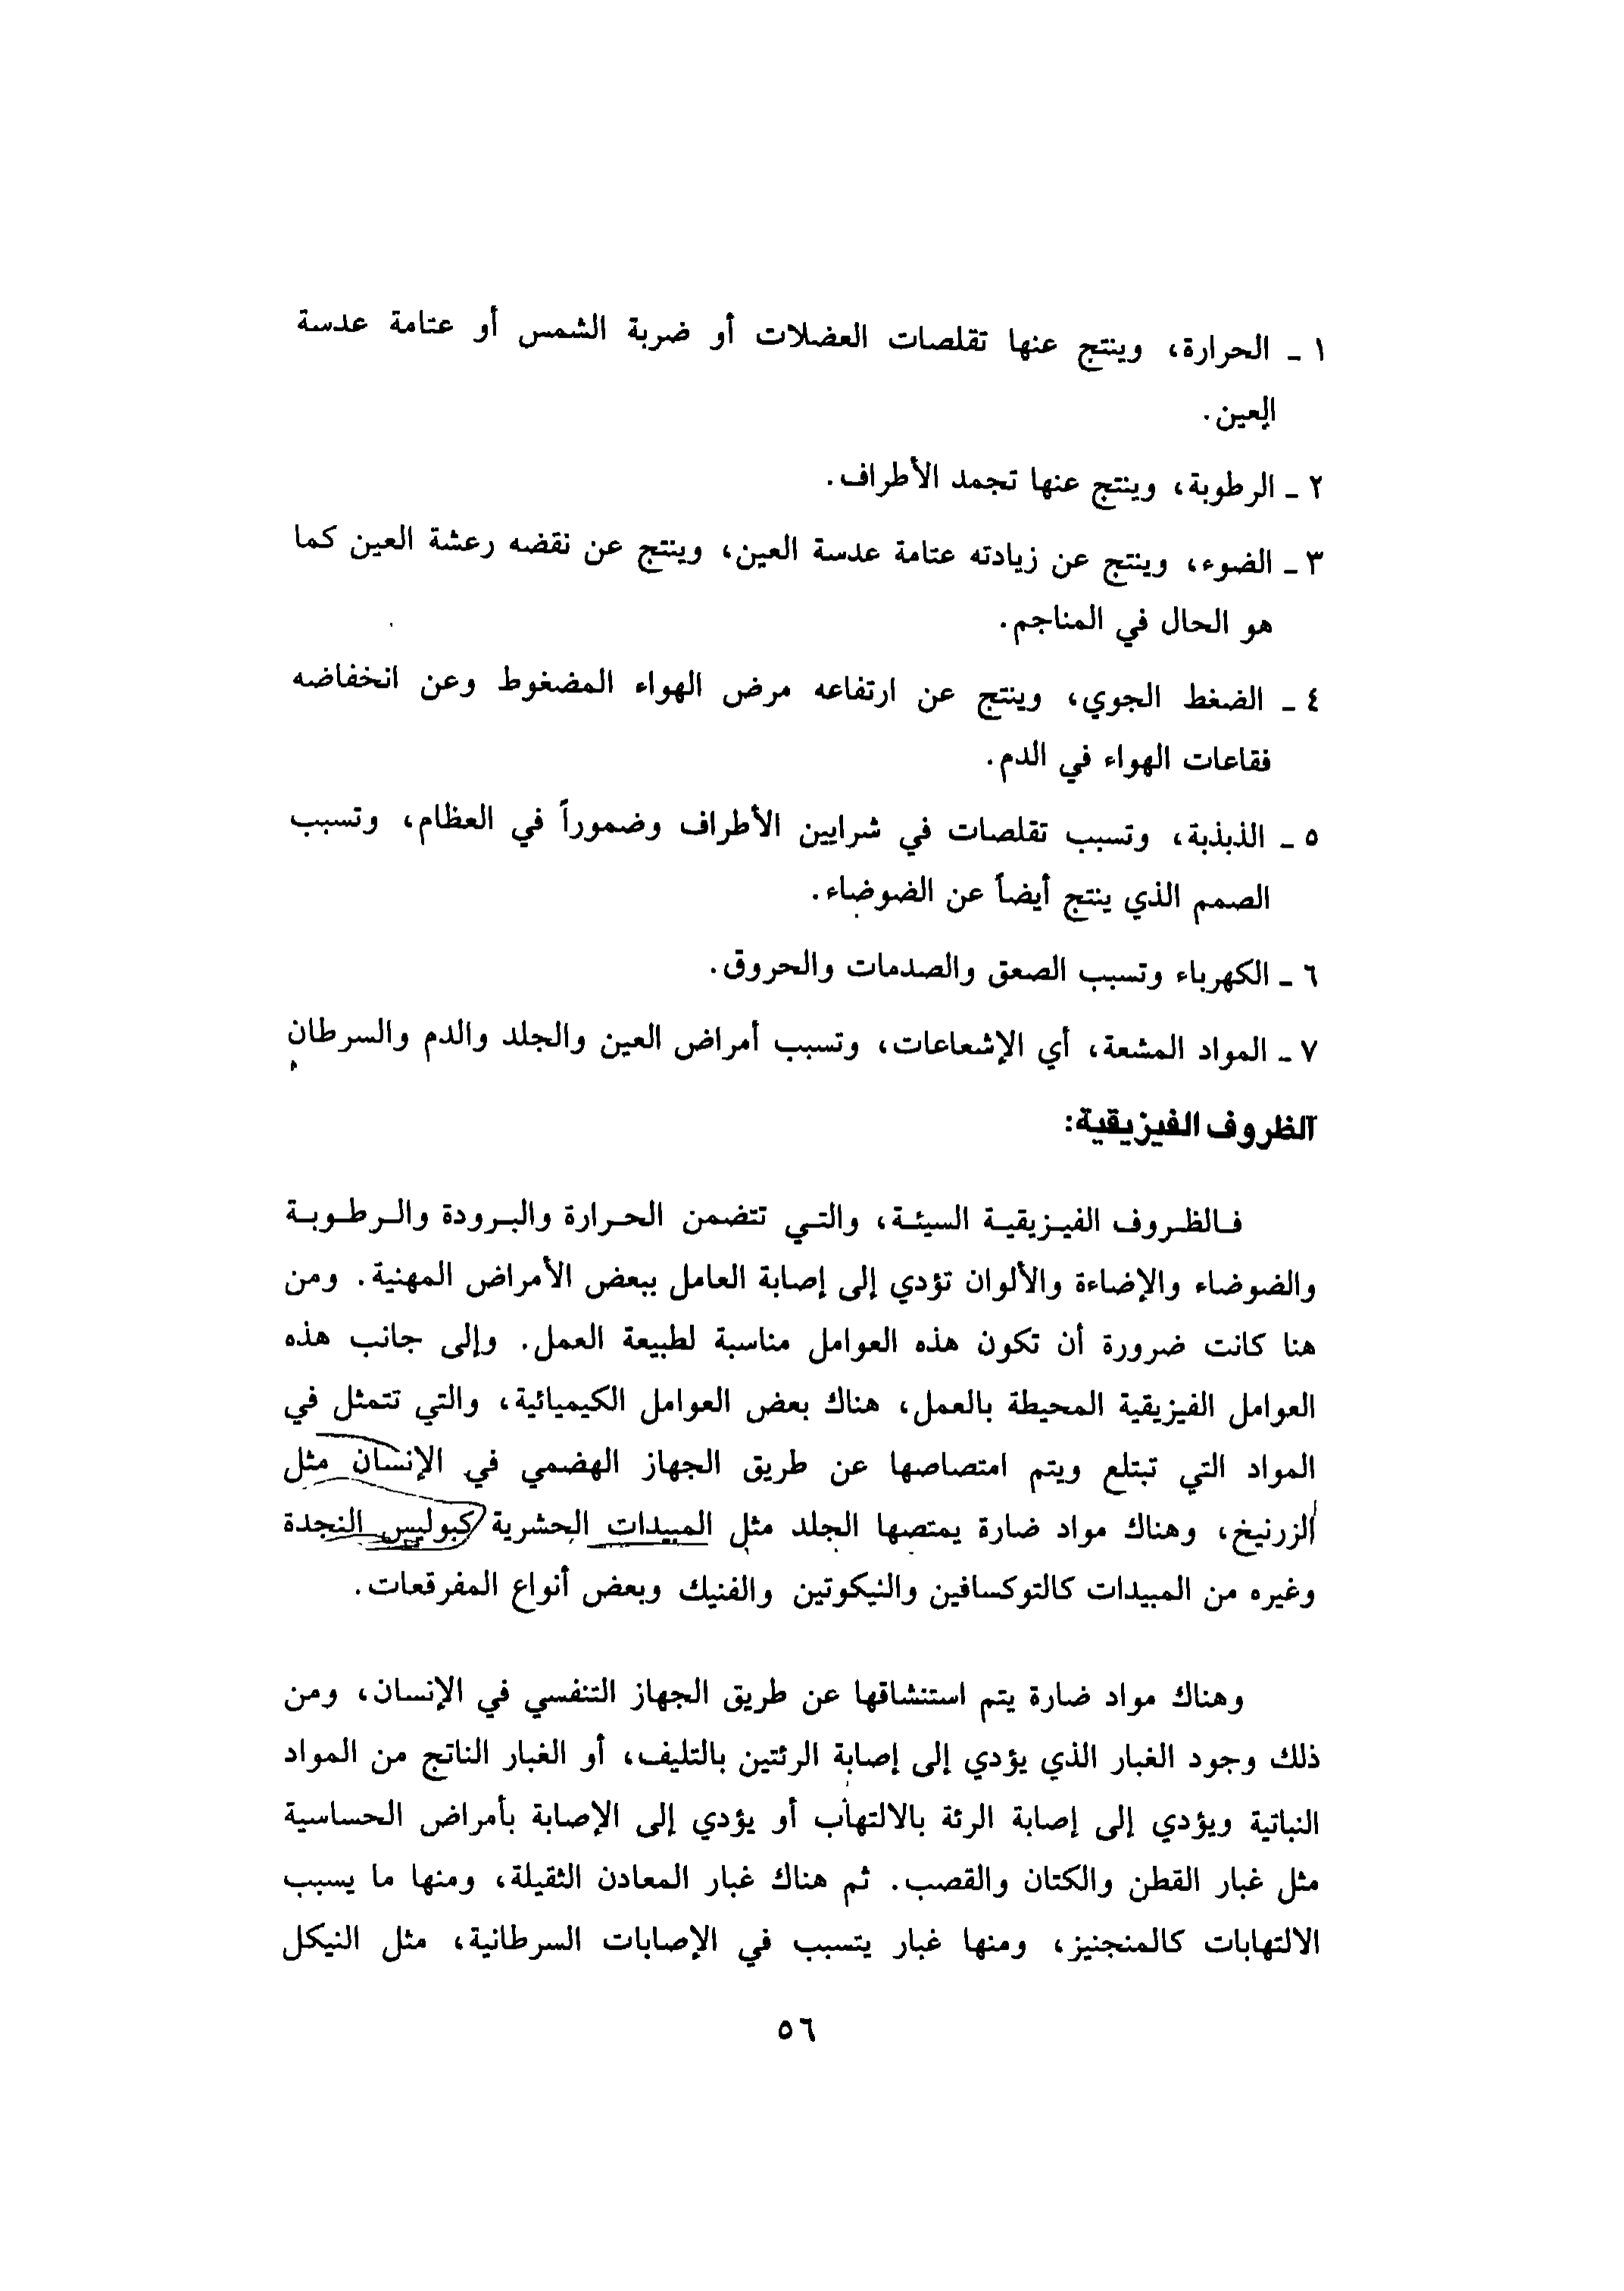 ١ ـ الحرارة، وينتج عنها تقلصات العضلات أو ضربة الشمس أو عتامة عدسة
العين.
٢ ـ الرطوبة، وينتج عنها تجمد الأطراف.
٣ ـ الضوء، وينتج عن زيادته عتامة عدسة العين، وينتج عن نقضه رعشة العين كما
هو الحال في المناجم.
٤ ـ الضغط الجوي، وينتج عن ارتفاعه مرض الهواء المضغوط وعن انخفاضه
فقاعات الهواء في الدم.
٥ ـ الذبذبة، وتسبب تقلصات في شرايين الأطراف وضموراً في العظام، وتسبب
الصمم الذي ينتج أيضاً عن الضوضاء.
٦ ـ الكهرباء وتسبب الصعق والصدمات والحروق.
٧ ـ المواد المشعة، أي الإشعاعات، وتسبب أمراض العين والجلد والدم والسرطان
الظروف الفيزيقية:
فالظروف الفيزيقية السيئة، والتي تتضمن الحرارة والبرودة والرطوبة
والضوضاء والإضاءة والألوان تؤدي إلى إصابة العامل ببعض الأمراض المهنية. ومن
هنا كانت ضرورة أن تكون هذه العوامل مناسبة لطبيعة العمل. وإلى جانب هذه
العوامل الفيزيقية المحيطة بالعمل، هناك بعض العوامل الكيميائية، والتي تتمثل في
المواد التي تبتلع ويتم امتصاصها عن طريق الجهاز الهضمي في الإنسان مثل
الزرنيخ، وهناك مواد ضارة يمتصها الجلد مثل المبيدات الحشرية كبوليس النجدة
وغيره من المبيدات كالتوكسافين والنيكوتين والفنيك وبعض أنواع المفرقعات.
وهناك مواد ضارة يتم استنشاقها عن طريق الجهاز التنفسي في الإنسان، ومن
ذلك وجود الغبار الذي يؤدي إلى إصابة الرئتين بالتليف، أو الغبار الناتج من المواد
النباتية ويؤدي إلى إصابة الرئة بالالتهاب أو يؤدي إلى الإصابة بأمراض الحساسية
مثل غبار القطن والكتان والقصب. ثم هناك غبار المعادن الثقيلة، ومنها ما يسبب
الالتهابات كالمنجنيز، ومنها غبار يتسبب في الإصابات السرطانية، مثل النيكل
٥٦